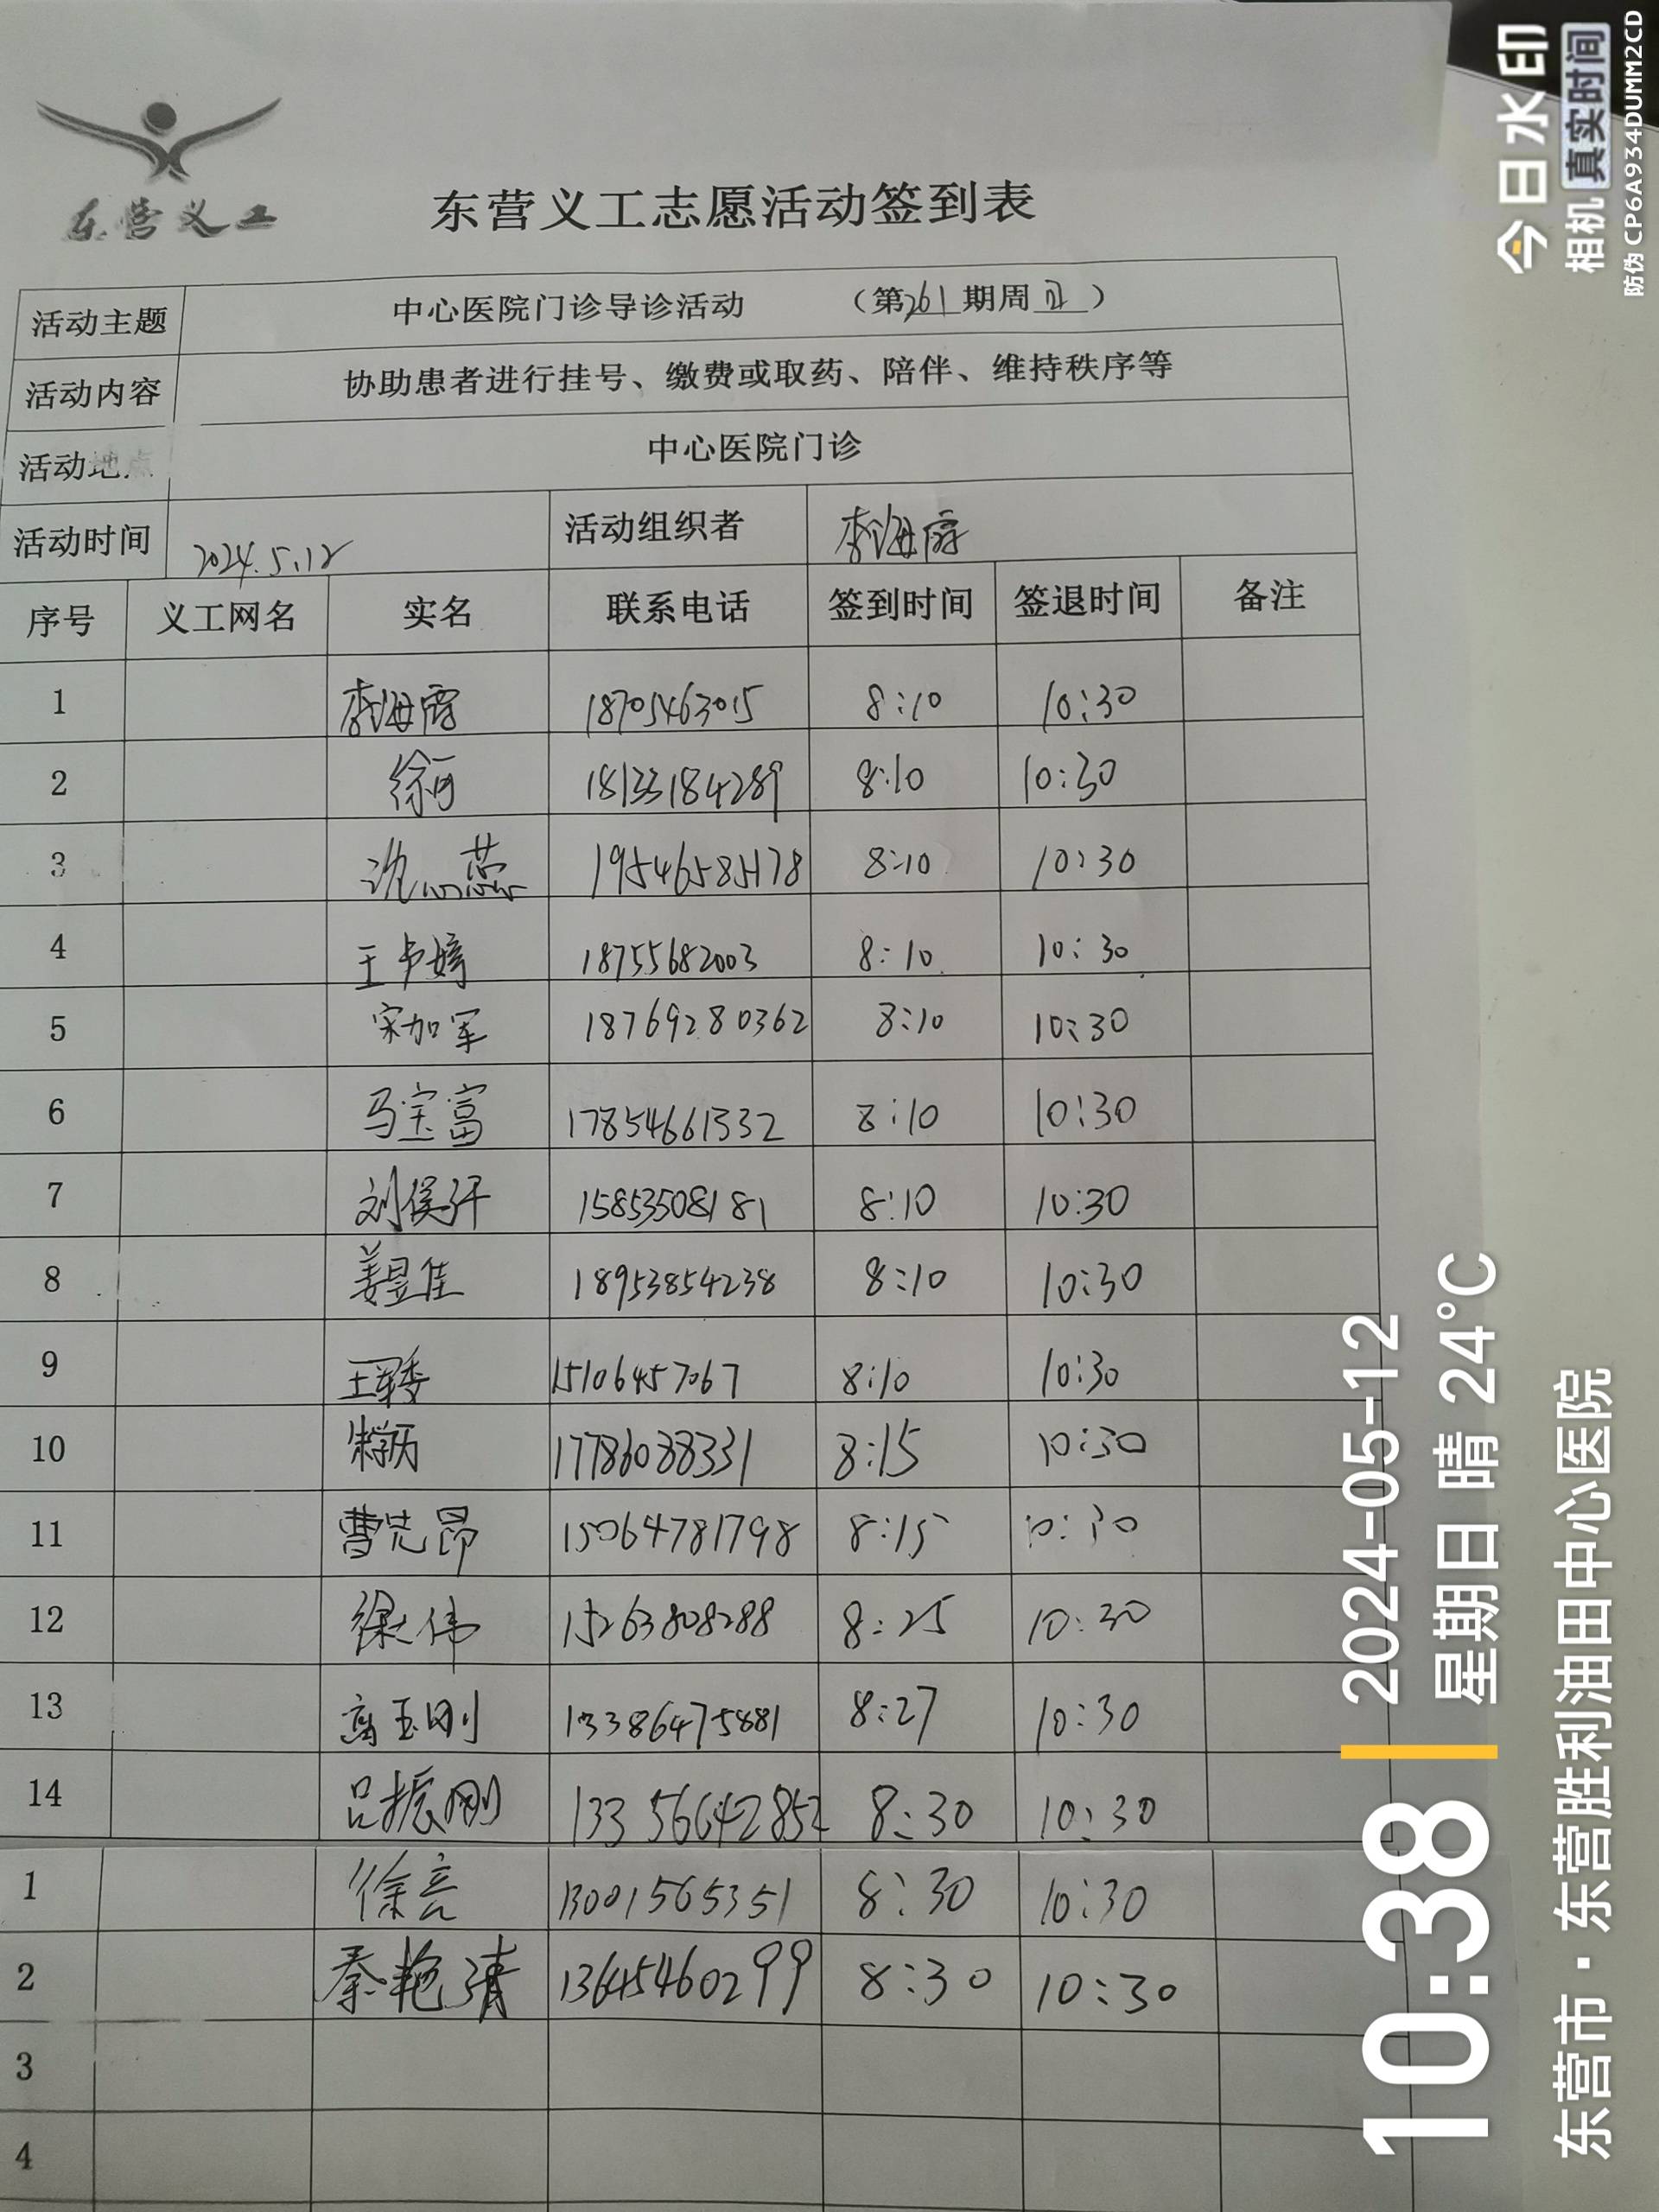 东营义工
东营义工志愿活动签到表
活动主题 中心医院门诊导诊活动 （第261期周日）
活动内容 协助患者进行挂号、缴费或取药、陪伴、维持秩序等
活动地点 中心医院门诊
活动时间 2024.5.12 活动组织者 李海霞
序号 义工网名 实名 联系电话 签到时间 签退时间 备注
1 李海霞 18705463015 8:10 10:30
2 18133184289 8:10 10:30
3 沈心蕊 19546585178 8:10 10:30
4 王卢婷 18755682003 8:10 10:30
5 宋加军 18769280362 8:10 10:30
6 马宝富 17854661332 8:10 10:30
7 15853508181 8:10 10:30
8 姜昱佳 18953854238 8:10 10:30
9 15106457067 8:10 10:30
10 17786088331 8:15 10:30
11 曹先昂 15064781798 8:15 10:30
12 徐大伟 15263808288 8:25 10:30
13 高玉刚 13386475881 8:27 10:30
14 吕振刚 13356642852 8:30 10:30
1 徐亮 13001565351 8:30 10:30
2 秦艳清 13645460299 8:30 10:30
3
4
今日水印
相机 真实时间
防伪 CP6A934DUMM2CD
10:38 2024-05-12
星期日 晴 24°C
东营市·东营胜利油田中心医院